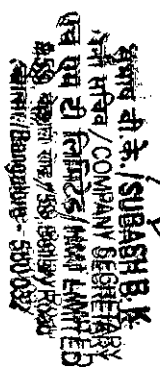 बी.के./SUBASH B. K.
सचिव /COMPANY SECRETARY
एच एम टी लिमिटेड/ HMT LIMITED
59, Bellary Road
/Bangalore - 560032